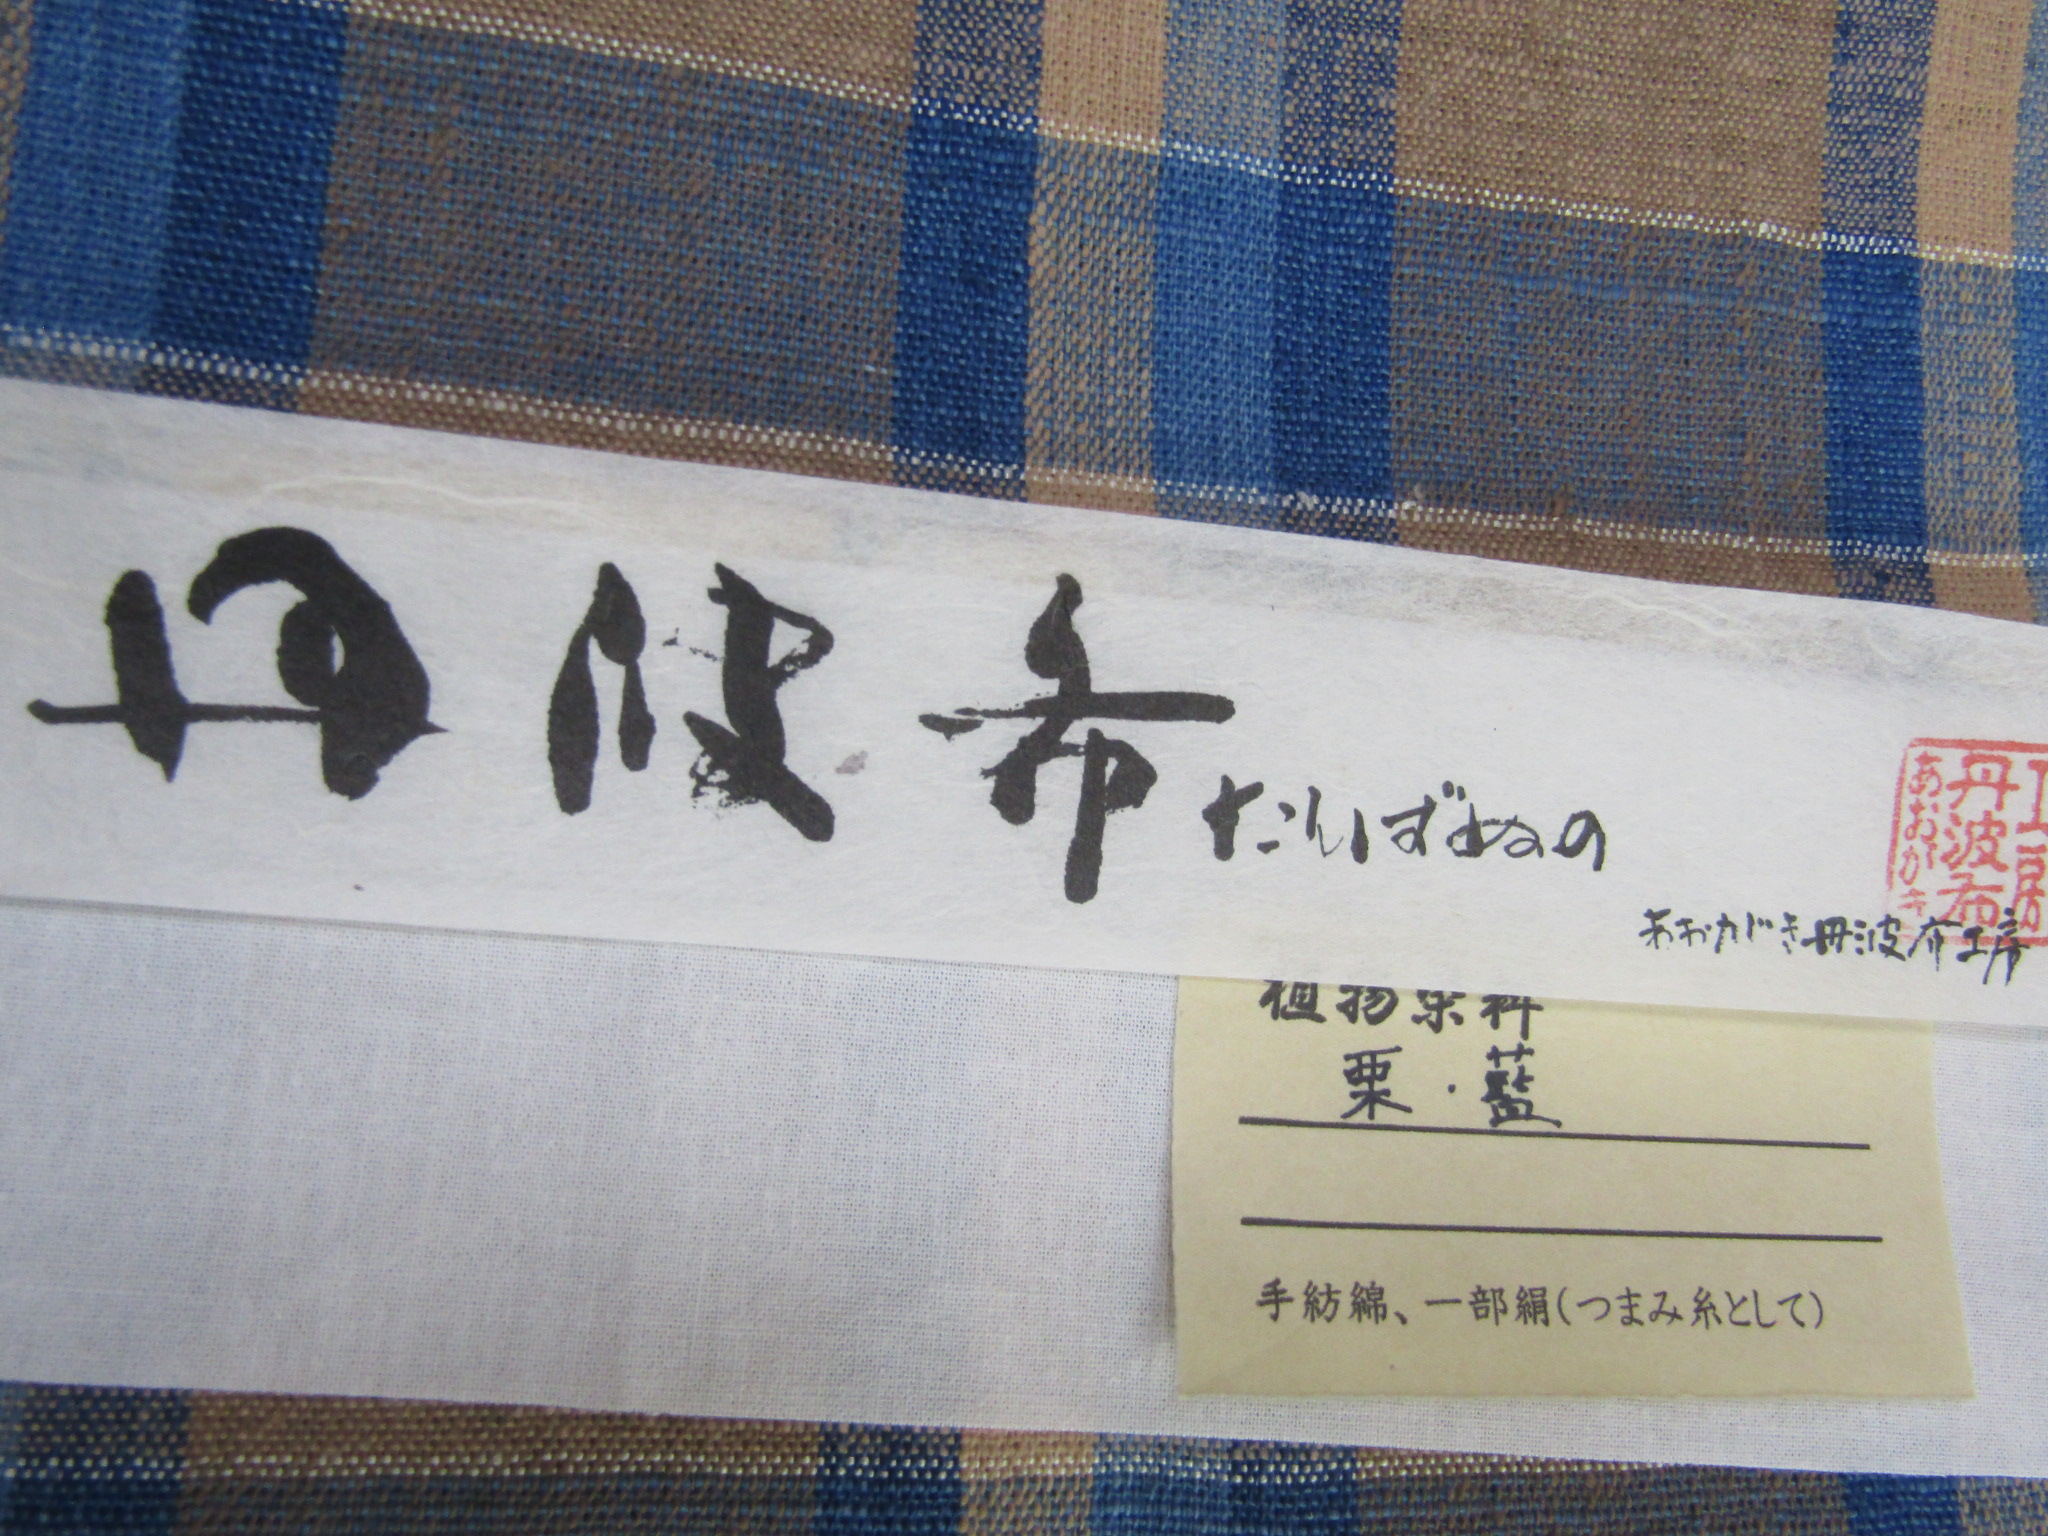 丹波布 たんばぬの
工房
丹波布
あおがき
あおがき丹波布工房
植物染料
栗・藍
手紡綿、一部絹(つまみ糸として)